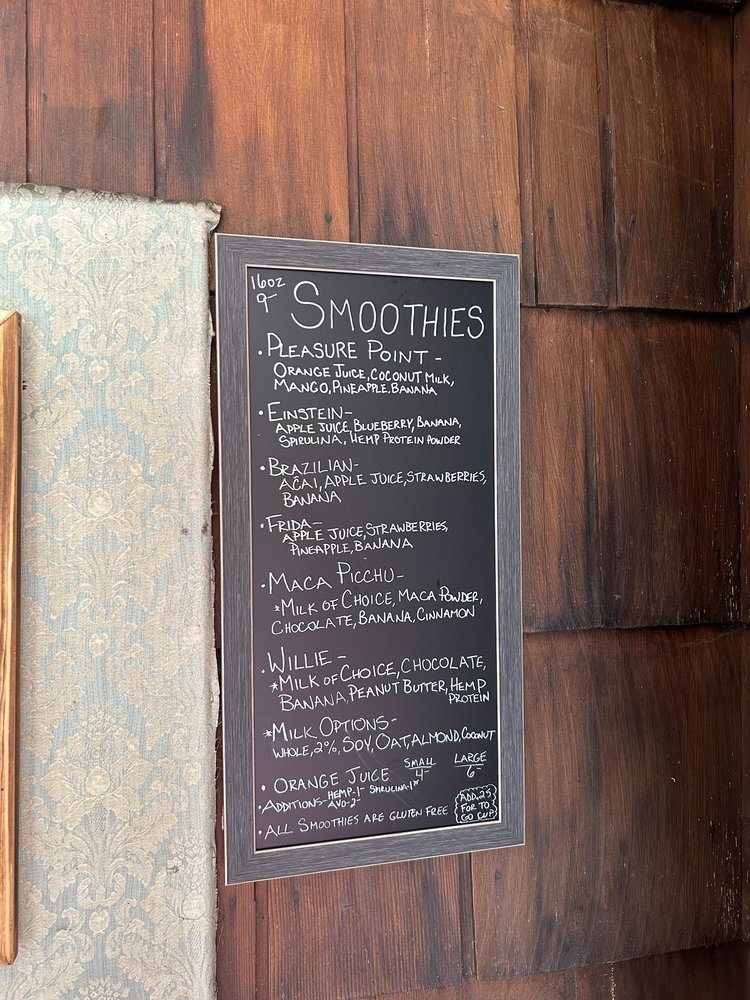 16oz
9-
SMOOTHIES
• PLEASURE POINT -
ORANGE JUICE, COCONUT MILK,
MANGO, PINEAPPLE, BANANA
• EINSTEIN -
APPLE JUICE, BLUEBERRY, BANANA,
SPIRULINA, HEMP PROTEIN POWDER
• BRAZILIAN -
AÇAI, APPLE JUICE, STRAWBERRIES,
BANANA
• FRIDA -
APPLE JUICE, STRAWBERRIES,
PINEAPPLE, BANANA
• MACA PICCHU -
*MILK OF CHOICE, MACA POWDER,
CHOCOLATE, BANANA, CINNAMON
• WILLIE -
*MILK OF CHOICE, CHOCOLATE,
BANANA, PEANUT BUTTER, HEMP
PROTEIN
*MILK OPTIONS -
WHOLE, 2%, SOY, OAT, ALMOND, COCONUT
• ORANGE JUICE SMALL 4- LARGE 6-
• ADDITIONS - HEMP-1- SPIRULINA-1
AVO-2-
• ALL SMOOTHIES ARE GLUTEN FREE
ADD .25
FOR TO
GO CUP